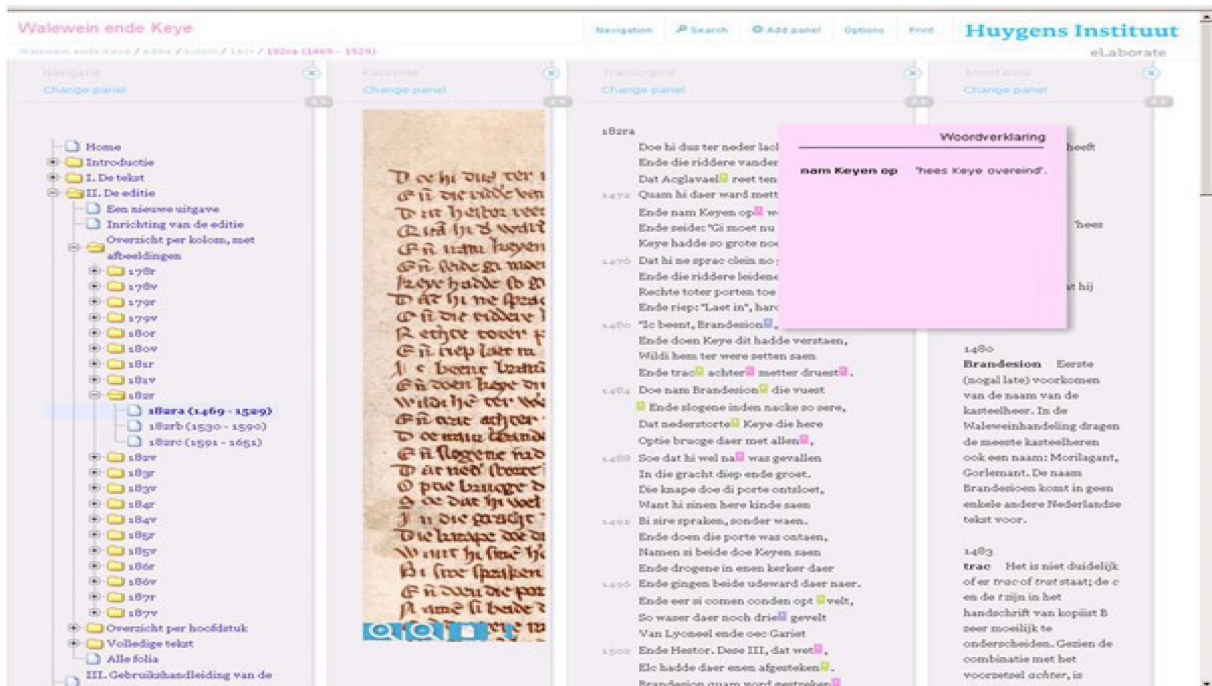 Walewein ende Keye
Navigation
Search
Add panel
Options
Print
Huygens Instituut
eLaborate
Walewein ende Keye / editie / kolom / 182r / 182ra (1469 - 1529)
Navigatie
Change panel
Facsimile
Change panel
Transcriptie
Change panel
Annotaties
Change panel
Home
Introductie
I. De tekst
II. De editie
Een nieuwe uitgave
Inrichting van de editie
Overzicht per kolom, met
afbeeldingen
178r
178v
179r
179v
180r
180v
181r
181v
182r
182ra (1469 - 1529)
182rb (1530 - 1590)
182rc (1591 - 1651)
182v
183r
183v
184r
184v
185r
185v
186r
186v
187r
187v
Overzicht per hoofdstuk
Volledige tekst
Alle folia
III. Gebruikshandleiding van de
182ra
Doe hi dus ter neder lach
Ende die riddere vander
Dat Acglavael reet ten
1472 Quam hi daer ward mett
Ende nam Keyen op
Ende seide: "Gi moet nu
Keye hadde so grote noe
1476 Dat hi ne sprac clein no
Ende die riddere leidene
Rechte toter porten toe
Ende riep: "Laet in", hard
1480 "Ic beent, Brandesion,
Ende doen Keye dit hadde verstaen,
Wildi hem ter were setten saen
Ende trac achter metter druest.
1484 Doe nam Brandesion die vuest
Ende slogene inden nacke so sere,
Dat nederstorte Keye die here
Optie brucge daer met allen,
1488 Soe dat hi wel na was gevallen
In die gracht diep ende groet.
Die knape doe di porte ontsloet,
Want hi sinen here kinde saen
1492 Bi sire spraken, sonder waen.
Ende doen die porte was ontaen,
Namen si beide doe Keyen saen
Ende drogene in enen kerker daer
1496 Ende gingen beide udeward daer naer.
Ende eer si comen conden opt velt,
So waser daer noch drie gevelt
Van Lyoneel ende oec Gariet
1500 Ende Hestor. Dese III, dat wet,
Elc hadde daer enen afgesteken.
Brandesion quam word gestreken
Woordverklaring
nam Keyen op 'hees Keye overeind'.
heeft
'hees
hij
1480
Brandesion Eerste
(nogal late) voorkomen
van de naam van de
kasteelheer. In de
Waleweinhandeling dragen
de meeste kasteelheren
ook een naam: Morilagant,
Gorlemant. De naam
Brandesioen komt in geen
enkele andere Nederlandse
tekst voor.
1483
trac Het is niet duidelijk
of er trac of trat staat; de c
en de t zijn in het
handschrift van kopiist B
zeer moeilijk te
onderscheiden. Gezien de
combinatie met het
voorzetsel achter, is